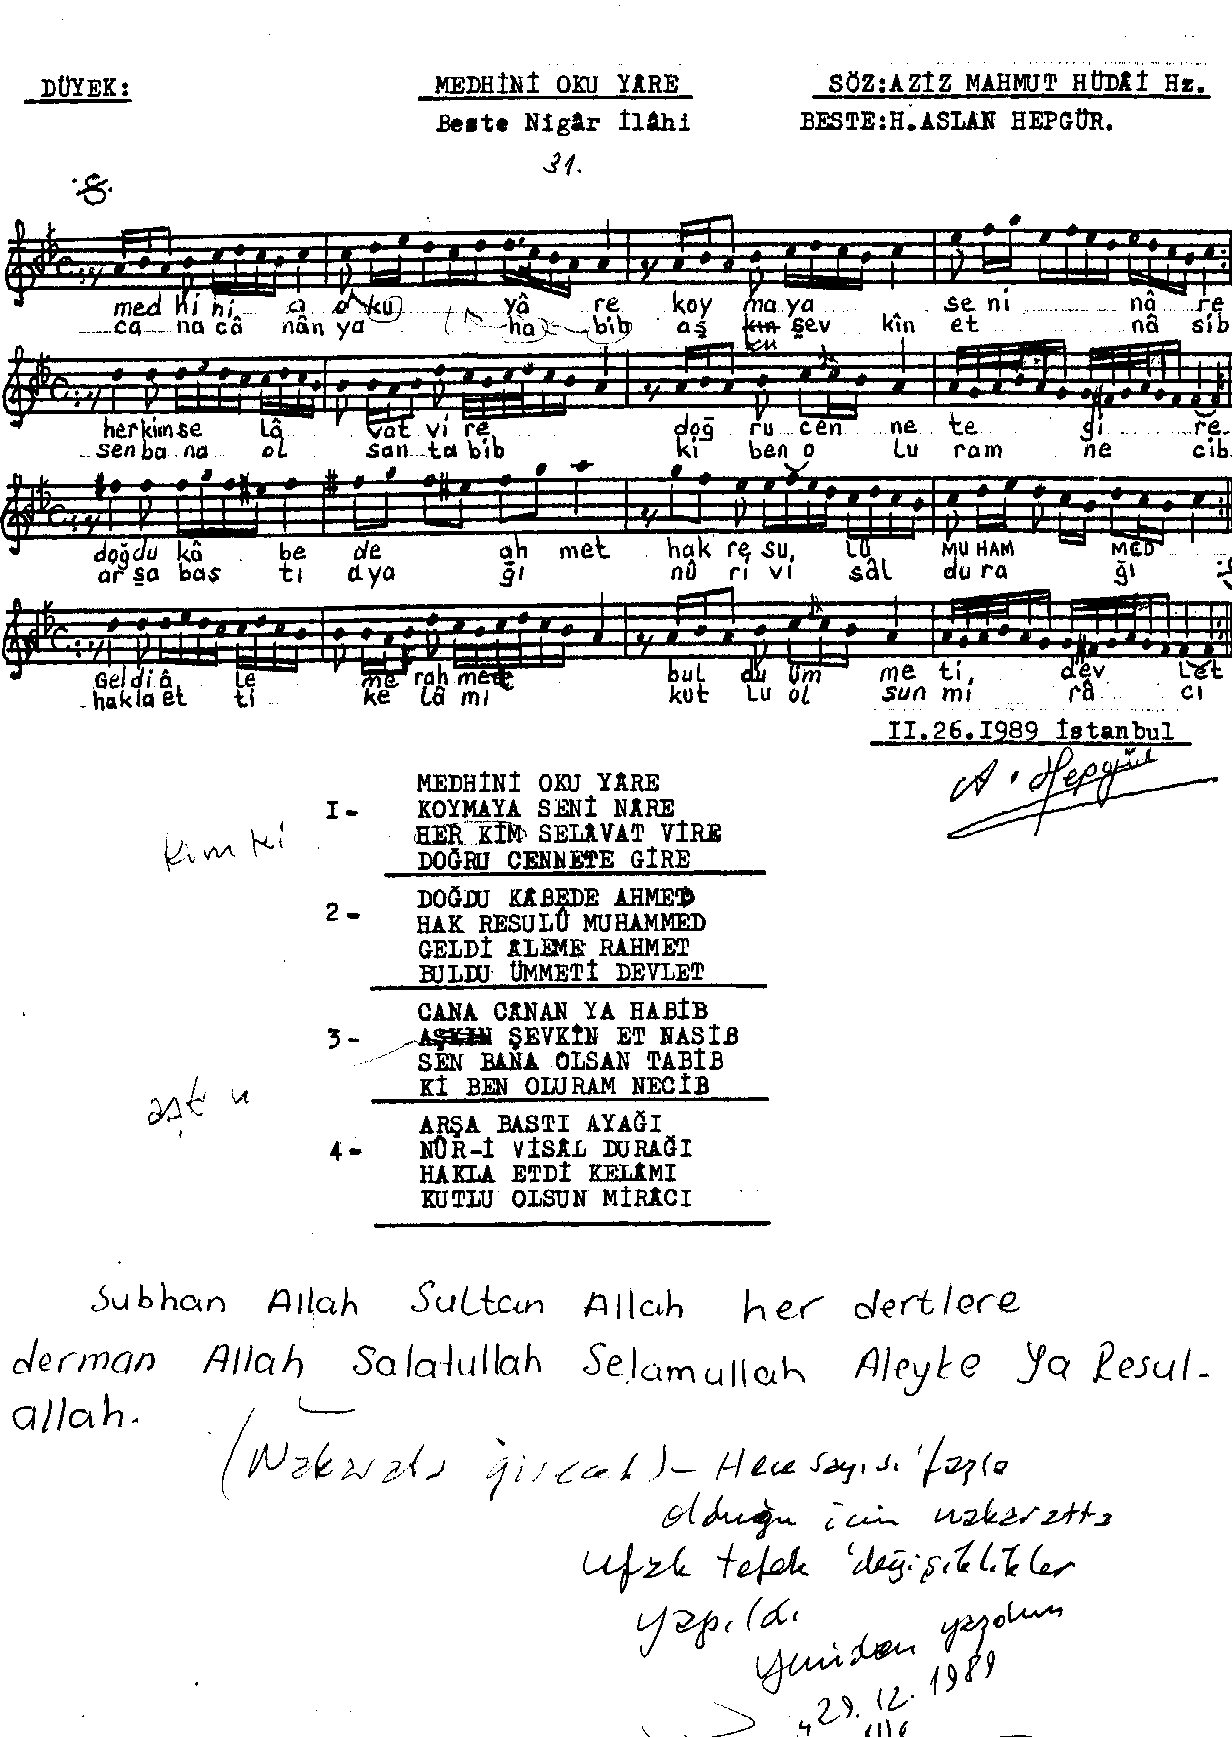 DÜYEK: MEDHİNİ OKU YÂRE SÖZ:AZİZ MAHMUT HÜDÂİ Hz.
Beste Nigâr İlâhi BESTE:H.ASLAN HEPGÜR.
31.
med hi ni o ku yâ re koy ma ya se ni nâ re
ca na câ nân ya ha bib aş kın şev kîn et nâ sib
ku
her kim se lâ vat vi re doğ ru cen ne te gi re
sen ba na ol san ta bib ki ben o lu ram ne cib
doğdu kâ be de ah met hak re su, lû MU HAM MED
ar şa bas tı a ya ğı nû ri vi sâl du ra ğı
Gel di â le me rah met bul du üm me ti, dev let
hak la et ti ke lâ mi kut lu ol sun mi râ cı
II.26.I989 İstanbul
A. Hepgül
MEDHİNİ OKU YÂRE
I- KOYMAYA SENİ NÂRE
kim ki HER KİM SELÂVAT VİRE
DOĞRU CENNETE GİRE
DOĞDU KÂBEDE AHMED
2- HAK RESULÛ MUHAMMED
GELDİ ÂLEME RAHMET
BULDU ÜMMETİ DEVLET
CANA CÂNAN YA HABİB
3- AŞKIN ŞEVKİN ET NASİB
SEN BANA OLSAN TABİB
Kİ BEN OLURAM NECİB
aşk u
ARŞA BASTI AYAĞI
4- NÛR-İ VİSÂL DURAĞI
HAKLA ETDİ KELÂMI
KUTLU OLSUN MİRÂCI
Subhan Allah Sultan Allah her dertlere
derman Allah Salatullah Selamullah Aleyke Ya Resul-
allah.
(Nakarata girecek)- Hece sayısı fazla
olduğu için nakaratta
ufak tefek değişiklikler
yapıldı
yeniden yazdım
29.12.1989